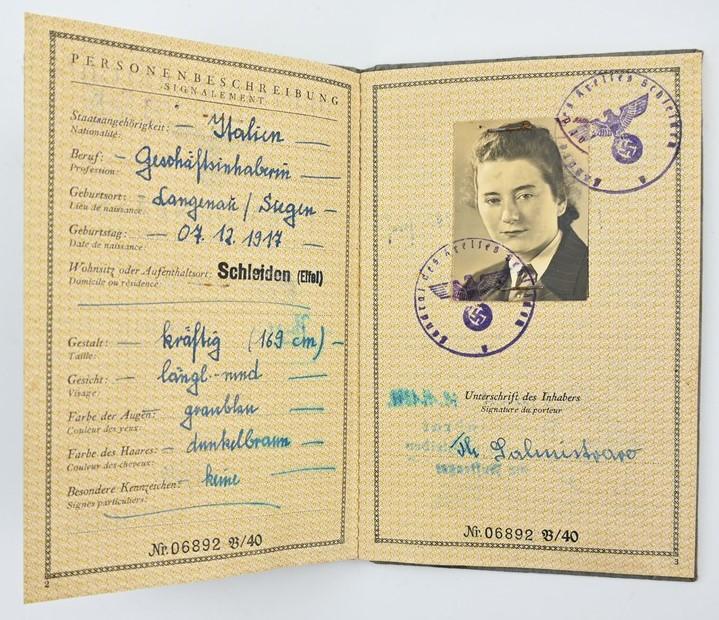 PERSONENBESCHREIBUNG
SIGNALEMENT
Staatsangehörigkeit: — Italien —
Nationalité:
Beruf: — Geschäftsinhaberin
Profession:
Geburtsort: — Langenau / Siegen —
Lieu de naissance:
Geburtstag: — 07. 12. 1917 —
Date de naissance:
Wohnsitz oder Aufenthaltsort: Schleiden (Eifel)
Domicile ou résidence:
Gestalt: — kräftig (169 cm) —
Taille:
Gesicht: — längl.-rund —
Visage:
Farbe der Augen: — graublau —
Couleur des yeux:
Farbe des Haares: — dunkelbraun —
Couleur des cheveux:
Besondere Kennzeichen: — keine —
Signes particuliers:
Nr. 06892 B/40
2
des Kreises Schleiden
des Kreises Schleiden
Unterschrift des Inhabers
Signature du porteur
Th. Salmistraro
Nr. 06892 B/40
3